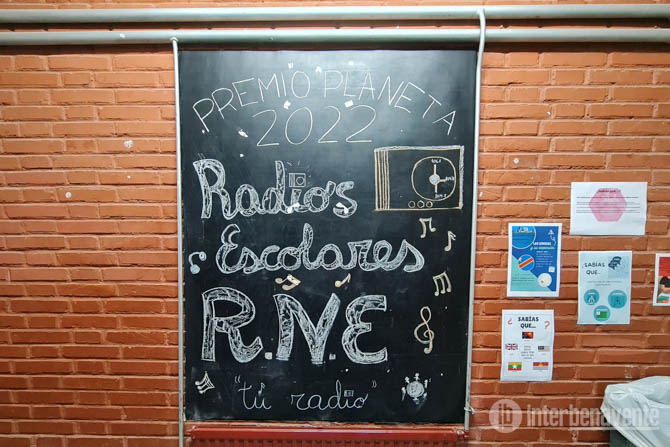 PREMIO PLANETA
2022
Radio's
Escolares
R.N.E
"tú radio"
SABÍAS QUE...
SABÍAS
QUE...
interbenavente